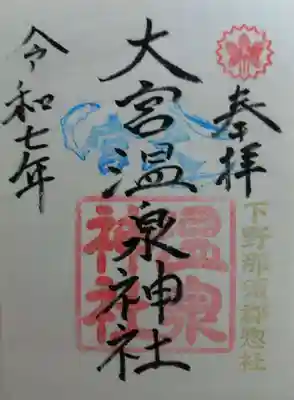 奉拝
下野那須郡惣社
大宮温泉神社
温泉
神社
令和七年